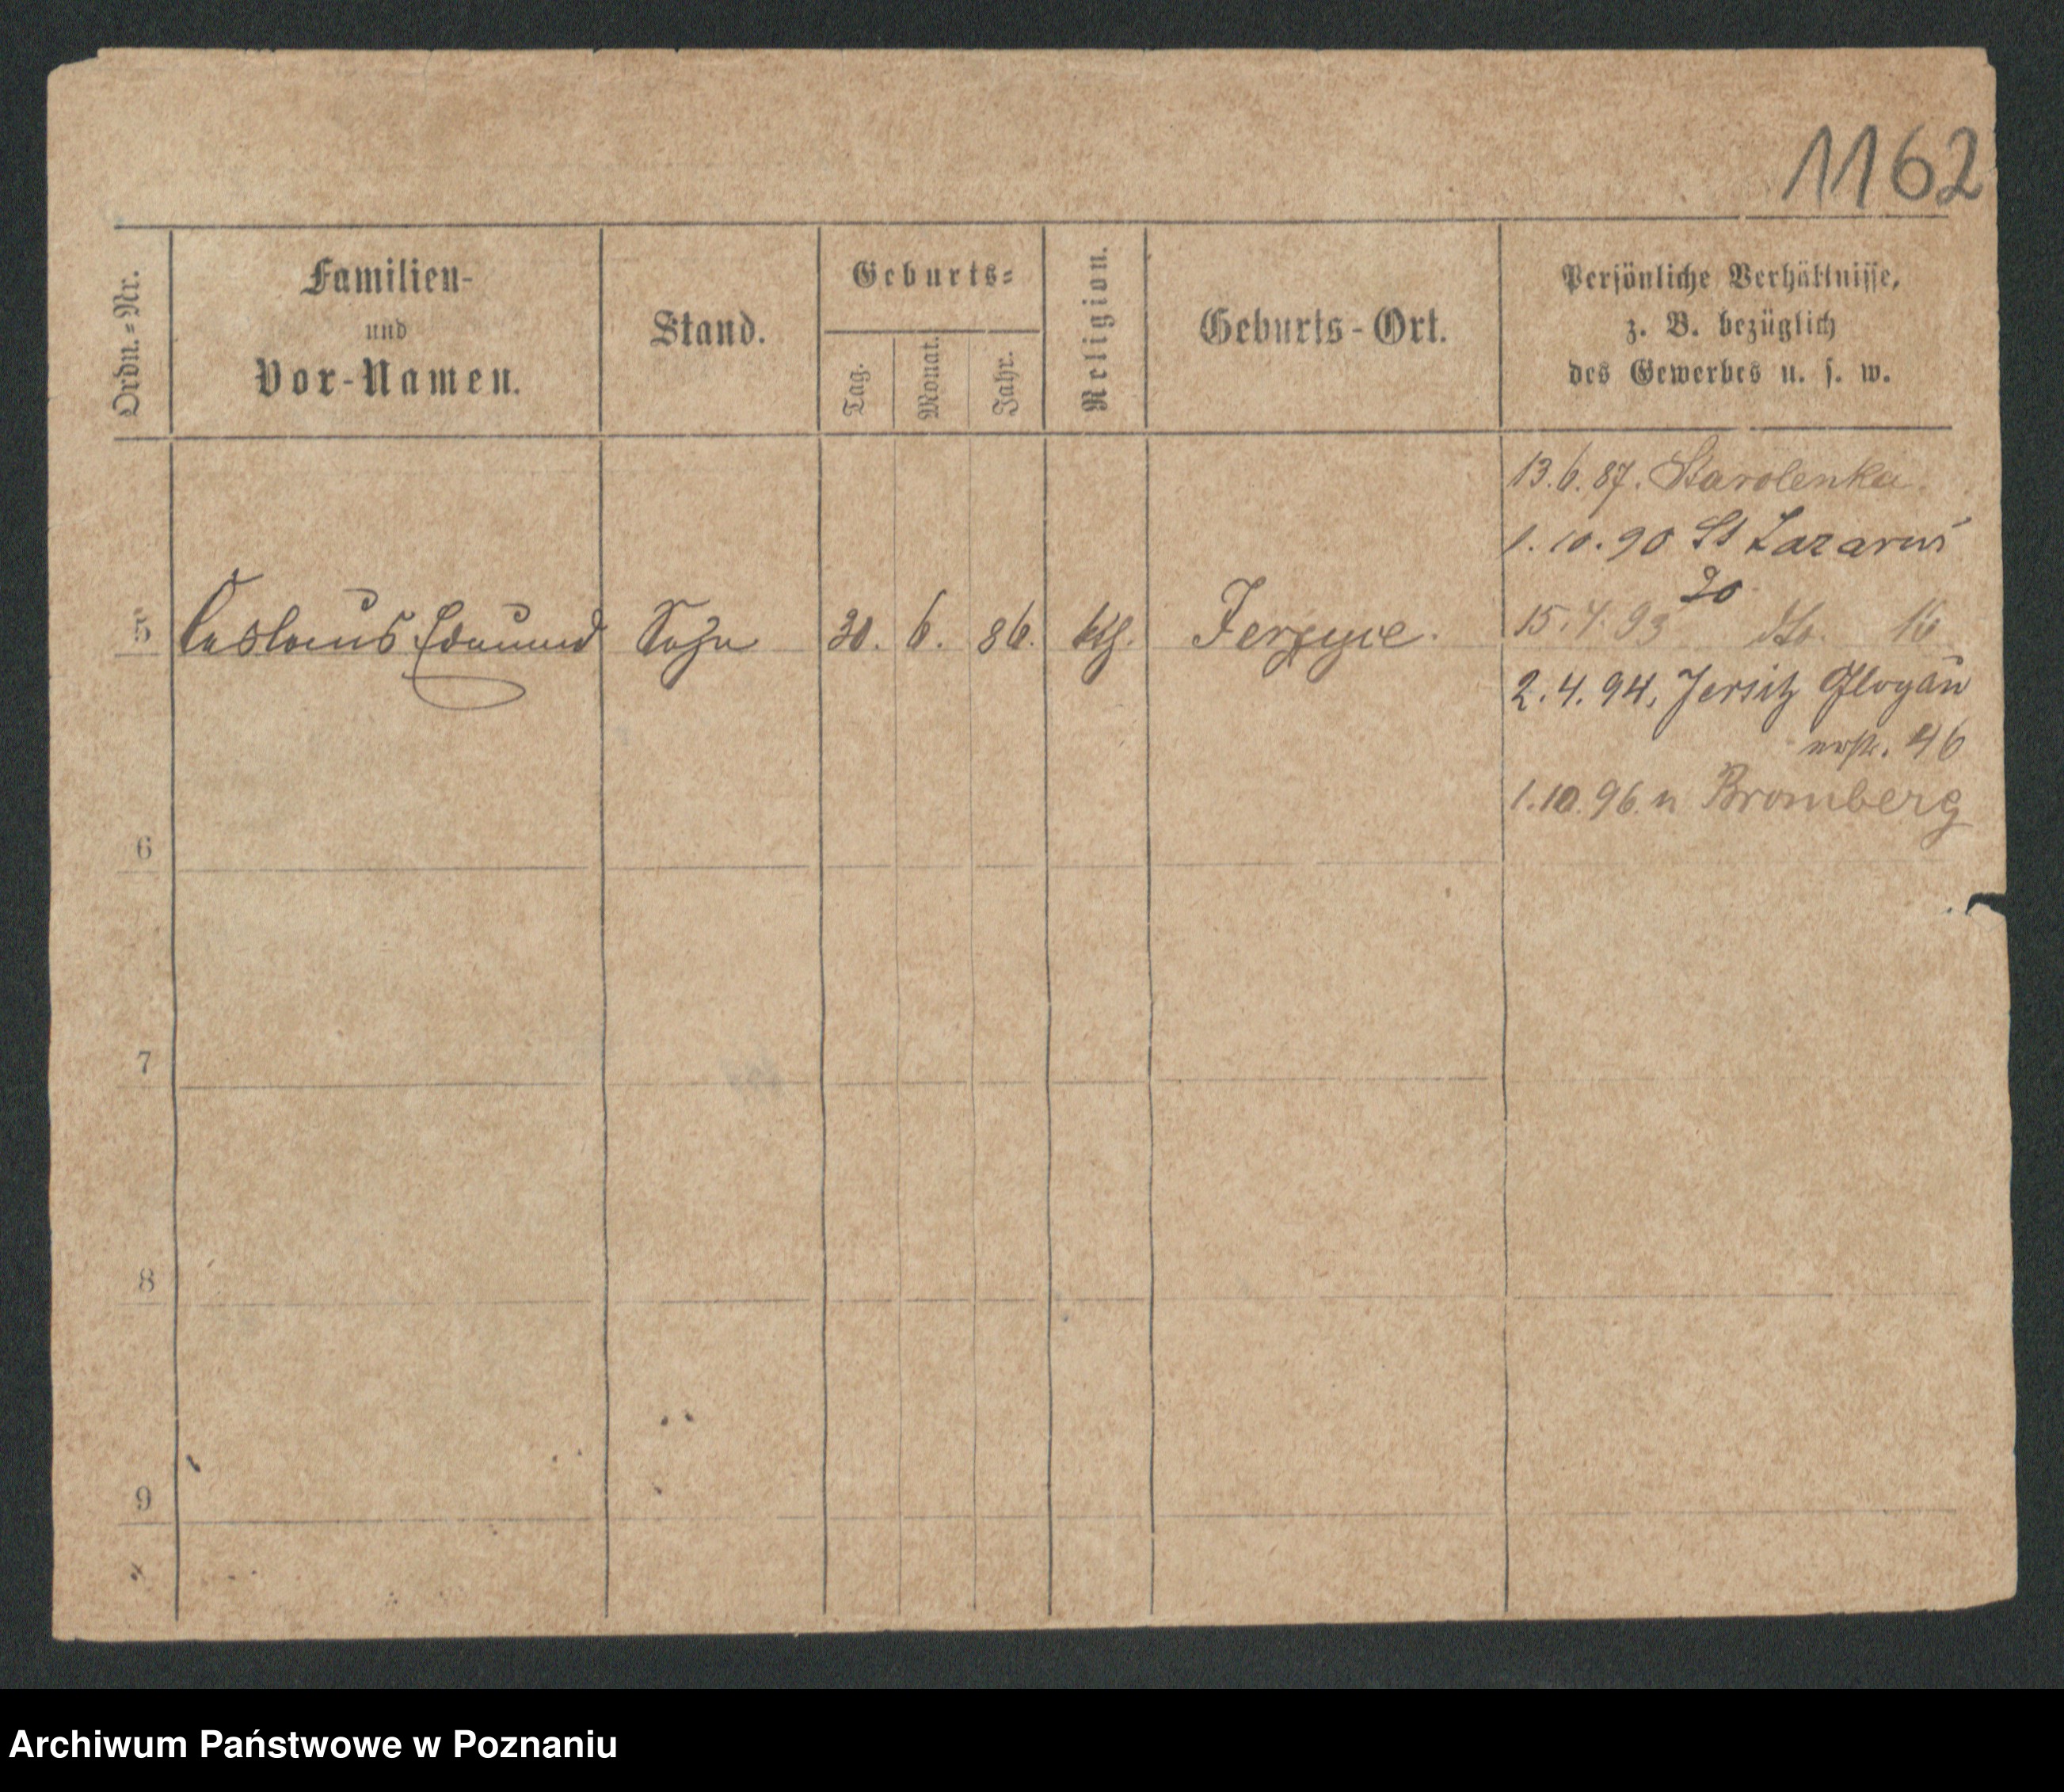 1162
Ordn.-Nr.
Familien-
und
Vor-Namen.
Stand.
Geburts-
Tag.
Monat.
Jahr.
Religion.
Geburts-Ort.
Persönliche Verhältnisse,
z. B. bezüglich
des Gewerbes u. s. w.
13.6.87. Starolenka.
1.10.90 St Lazarus
20
5 Ceslaus Edmund Sohn 30. 6. 86. kth. Jerzyce.
15.4.93 do. 16
2.4.94, Jersitz Glogau
erstr. 46
1.10.96. n Bromberg
6
7
8
9
Archiwum Państwowe w Poznaniu